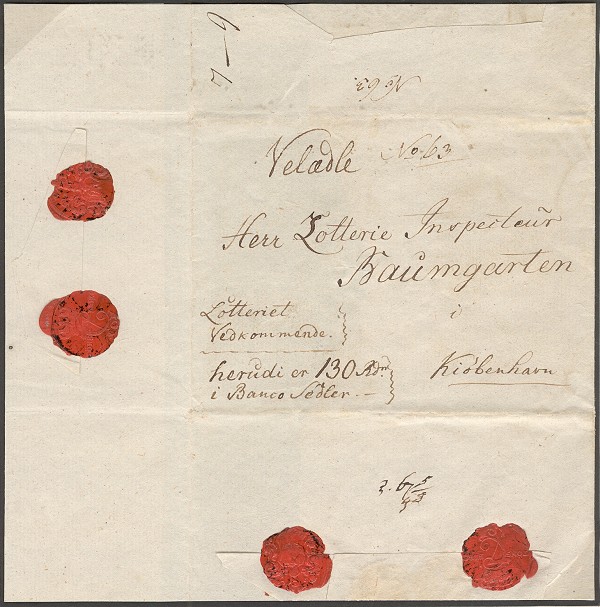 No 63.
Velædle No. 63
Herr Lotterie Inspecteur
Baumgarten
i
Kiöbenhavn
Lotteriet
Vedkommende.
herudi er 130 Rdr
i Banco Sedler.